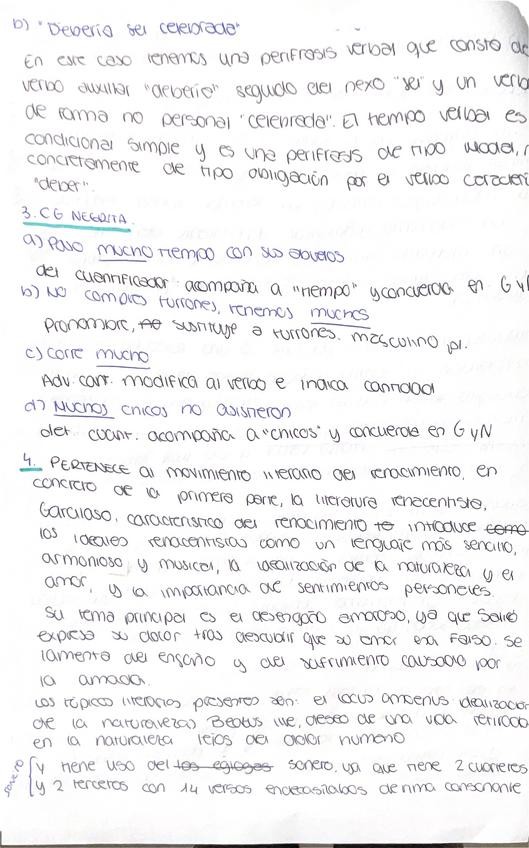 b) "Debería ser celebrada"
En este caso tenemos una perífrasis verbal que consta de
verbo auxiliar "debería" seguido del nexo "ser" y un verbo
de forma no personal "celebrada". El tiempo verbal es
condicional simple y es una perífrasis de tipo modal,
concretamente de tipo obligación por el verbo caracterí
"deber".
3. CG NEGRITA.
a) Paso mucho tiempo con sus abuelos
det cuantificador: acompaña a "tiempo" y concuerda en G y N
b) No compres turrones, tenemos muchos
Pronombre, sustituye a turrones. masculino pl.
c) Corre mucho
Adv. cant. modifica al verbo e indica cantidad
d) Muchos chicos no asistieron
det cuant. acompaña a "chicos" y concuerda en G y N
4. PERTENECE al movimiento literario del renacimiento, en
concreto de la primera parte, la literatura renacentista.
Garcilaso, característico del renacimiento to introduce como
los ideales renacentistas como un lenguaje más sencillo,
armonioso y musical, la idealización de la naturaleza y el
amor, y la importancia de sentimientos personales.
Su tema principal es el desengaño amoroso, ya que Salicio
expresa su dolor tras descubrir que su amor era falso. Se
lamenta del engaño y del sufrimiento causado por
la amada.
Los tópicos literarios presentes son: el locus amoenus idealización
de la naturaleza) Beatus ille, deseo de una vida retirada
en la naturaleza lejos del dolor humano
soneto
y tiene uso del los églogas soneto, ya que tiene 2 cuartetos
y 2 tercetos con 14 versos endecasílabos de rima consonante